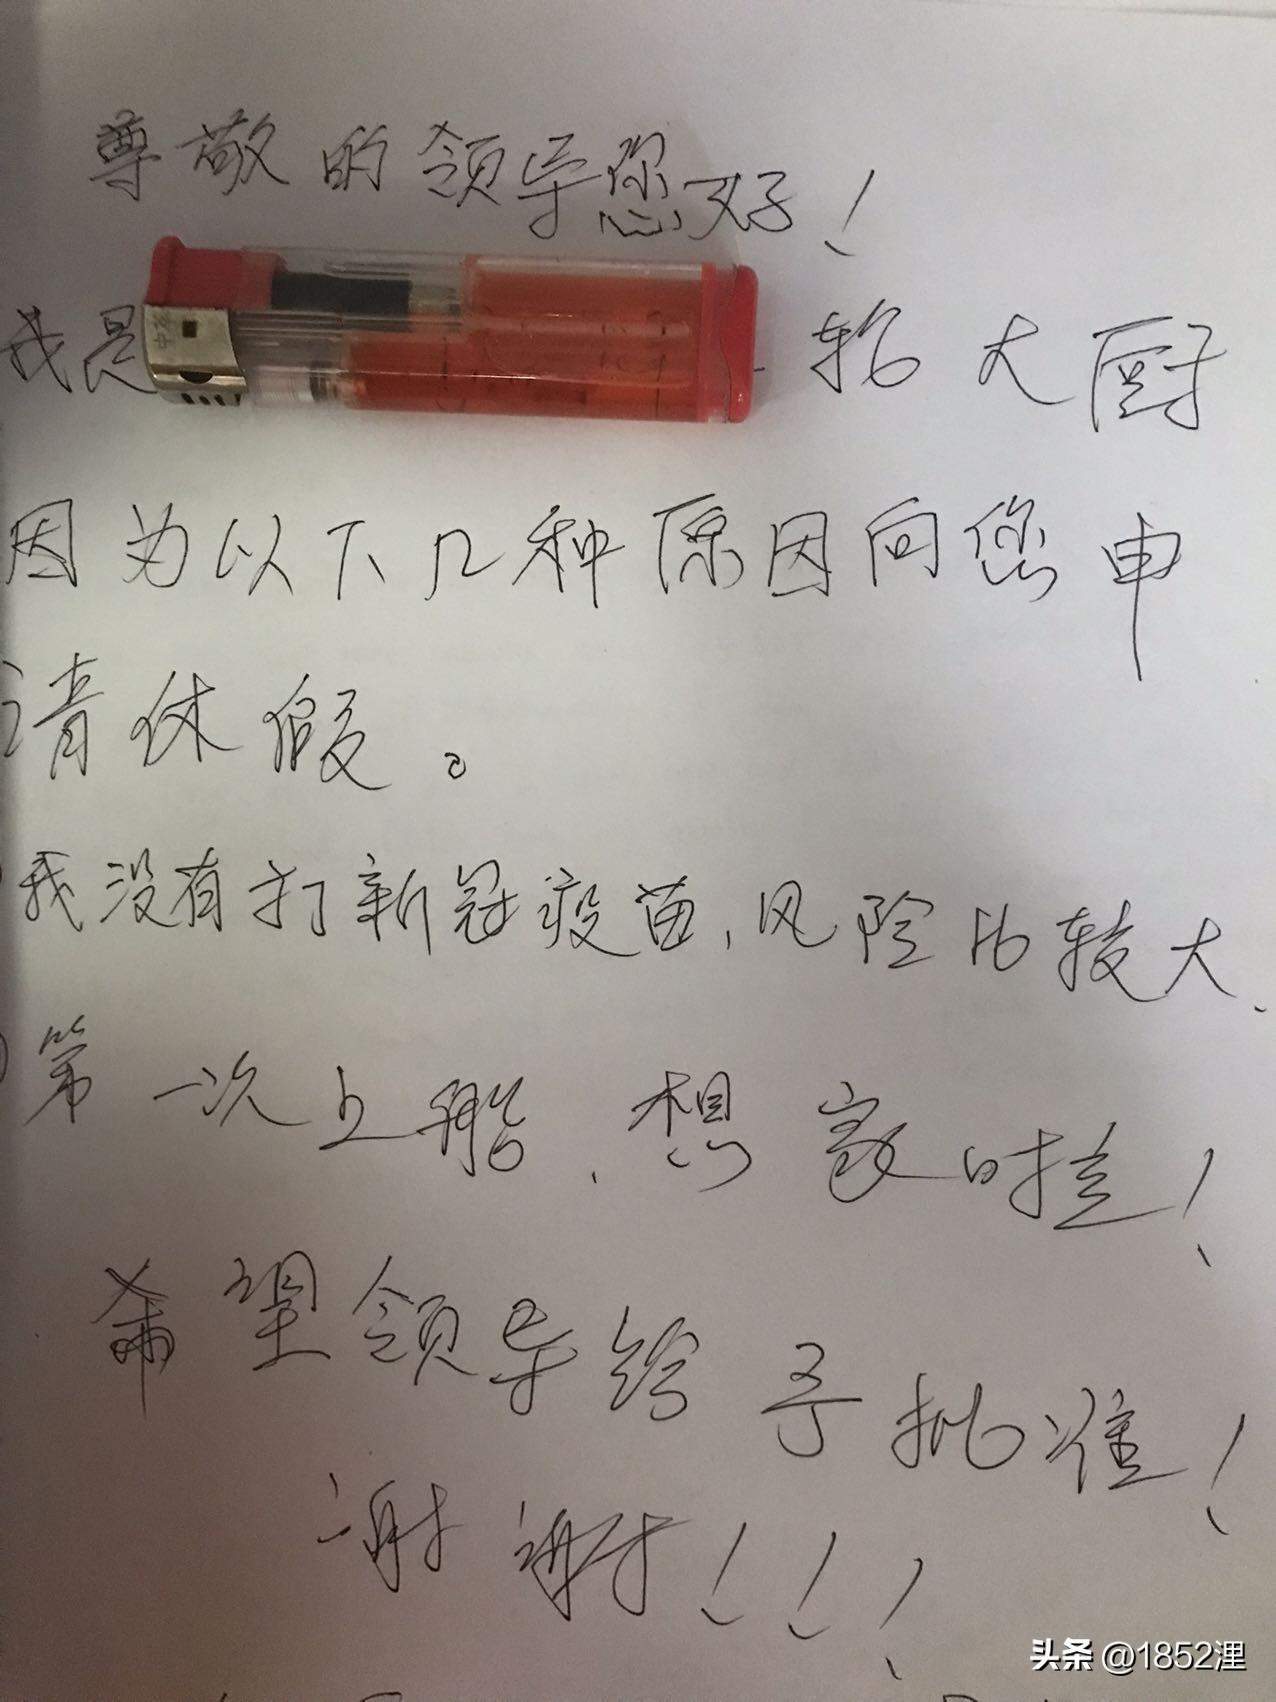 尊敬的领导您好！
我是 轮大厨
因为以下几种原因向您申
请休假。
我没有打新冠疫苗，风险比较大.
第一次上船、想家啦！
希望领导给予批准！
谢谢！！！
头条 @1852浬